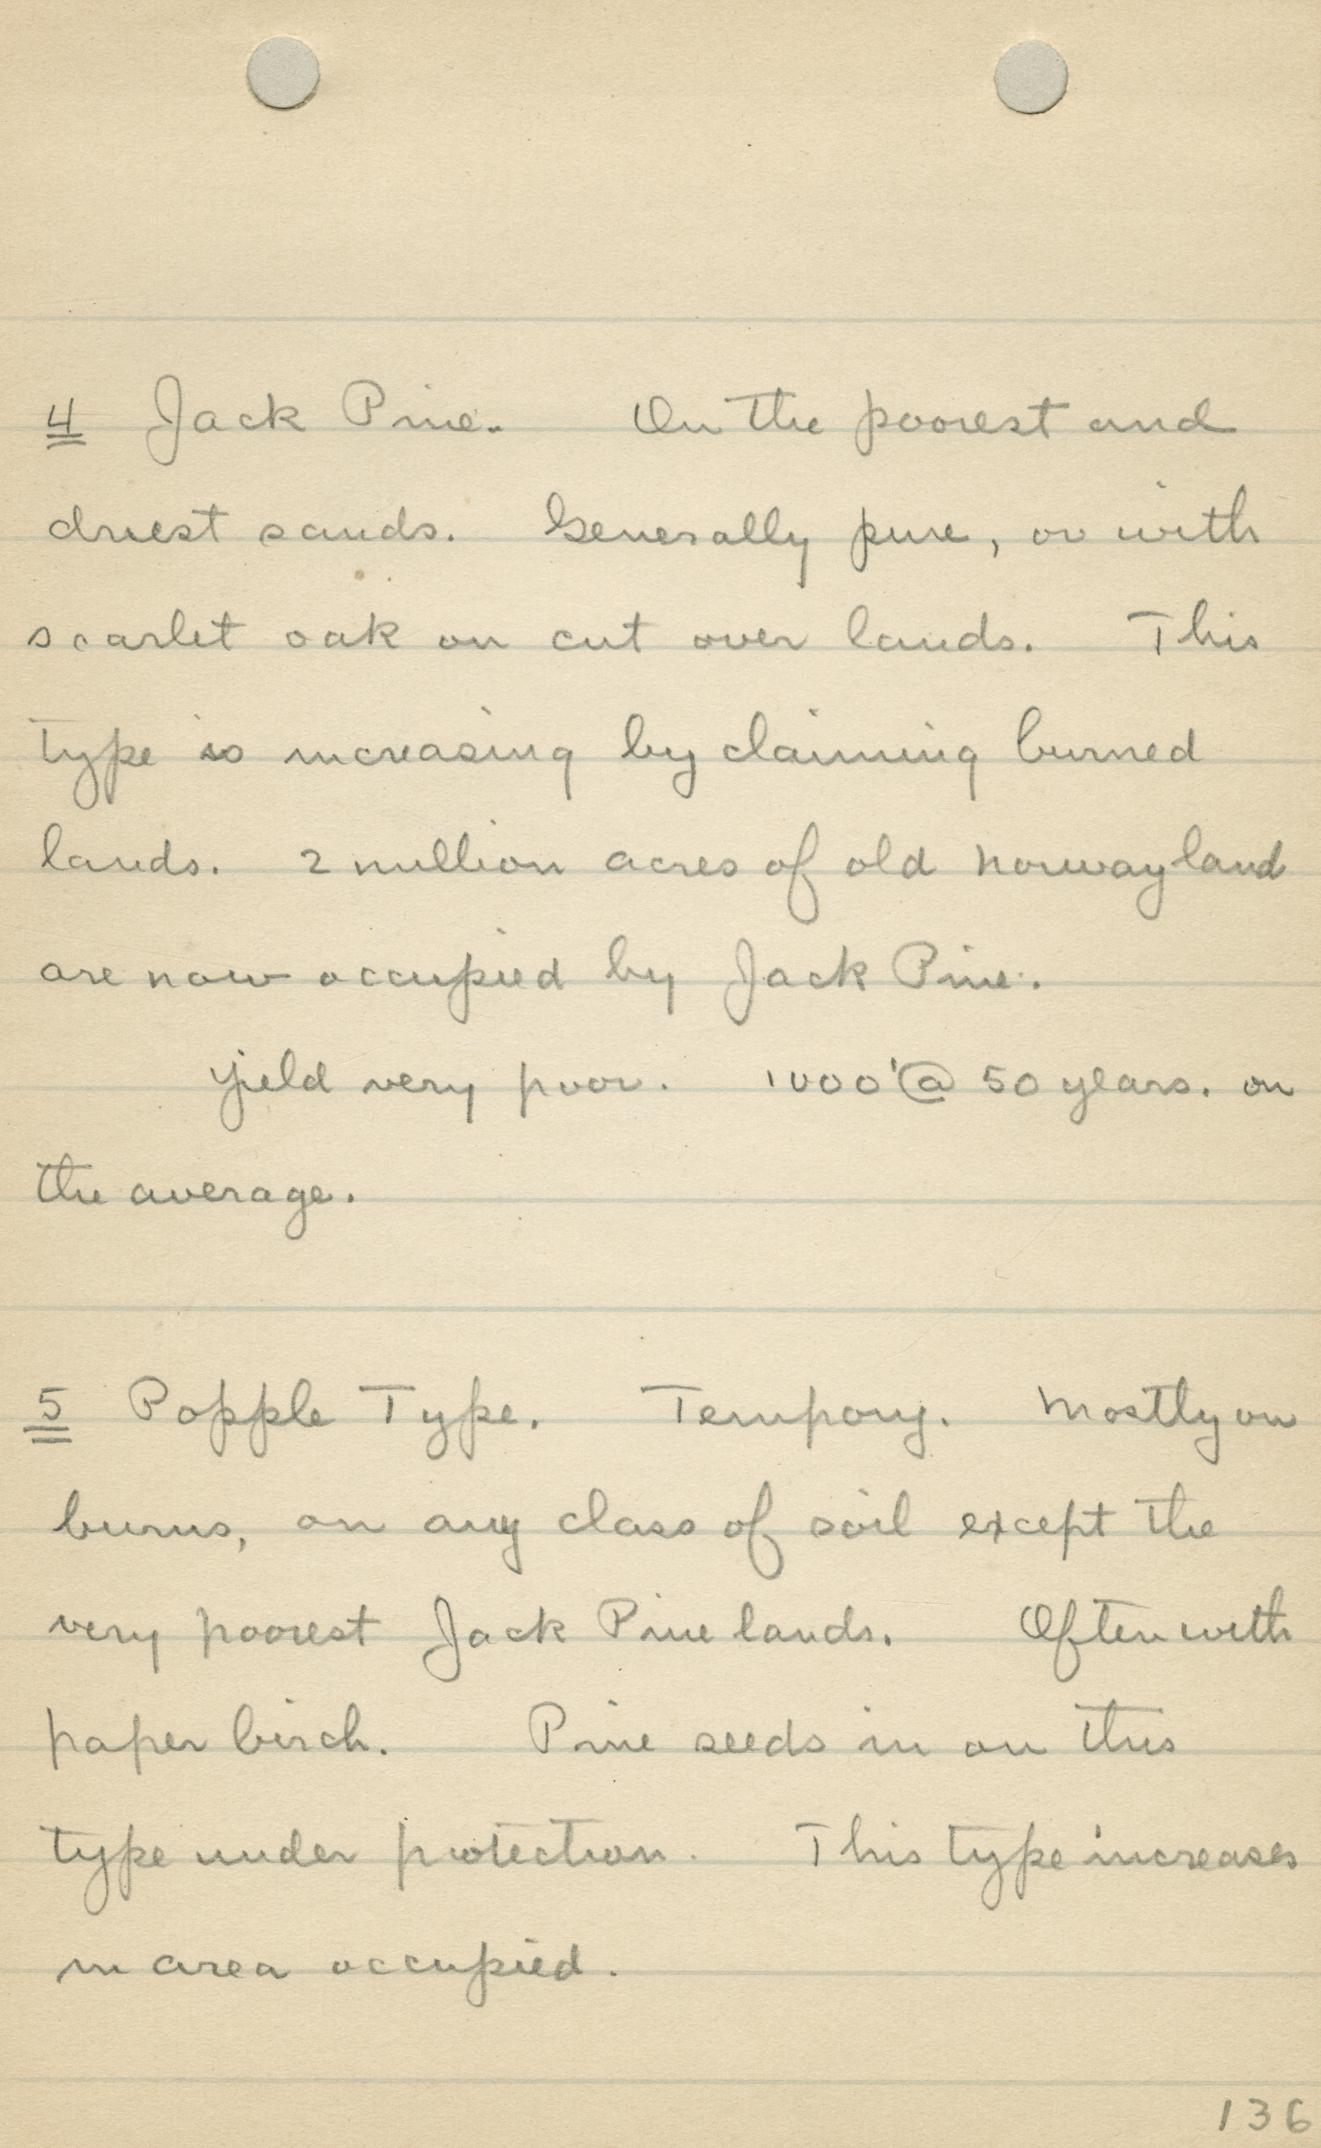 4 Jack Pine. On the poorest and
driest sands. Generally pure, or with
scarlet oak on cut over lands. This
type is increasing by claiming burned
lands. 2 million acres of old Norway land
are now occupied by Jack Pine.
Yield very poor. 1000'@ 50 years. on
the average.
5 Popple Type. Tempory. Mostly on
burns, on any class of soil except the
very poorest Jack Pine lands. Often with
paper birch. Pine seeds in on this
type under protection. This type increases
in area occupied.
136